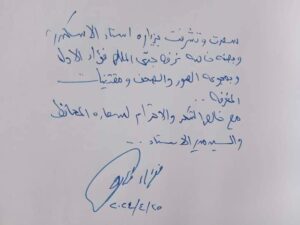 سعدت وتشرفت بزيارة استاد الاسكندرية
وبصفة خاصة غرفة جلالة الملك فؤاد الأول
ومجموعة الصور والصحف ومقتنيات
الغرفة ..
مع خالص الشكر والاحترام لسعادة المحافظ
والسيد مدير الاستاد ..
فؤاد
٢٠٢٤/٤/٢٥